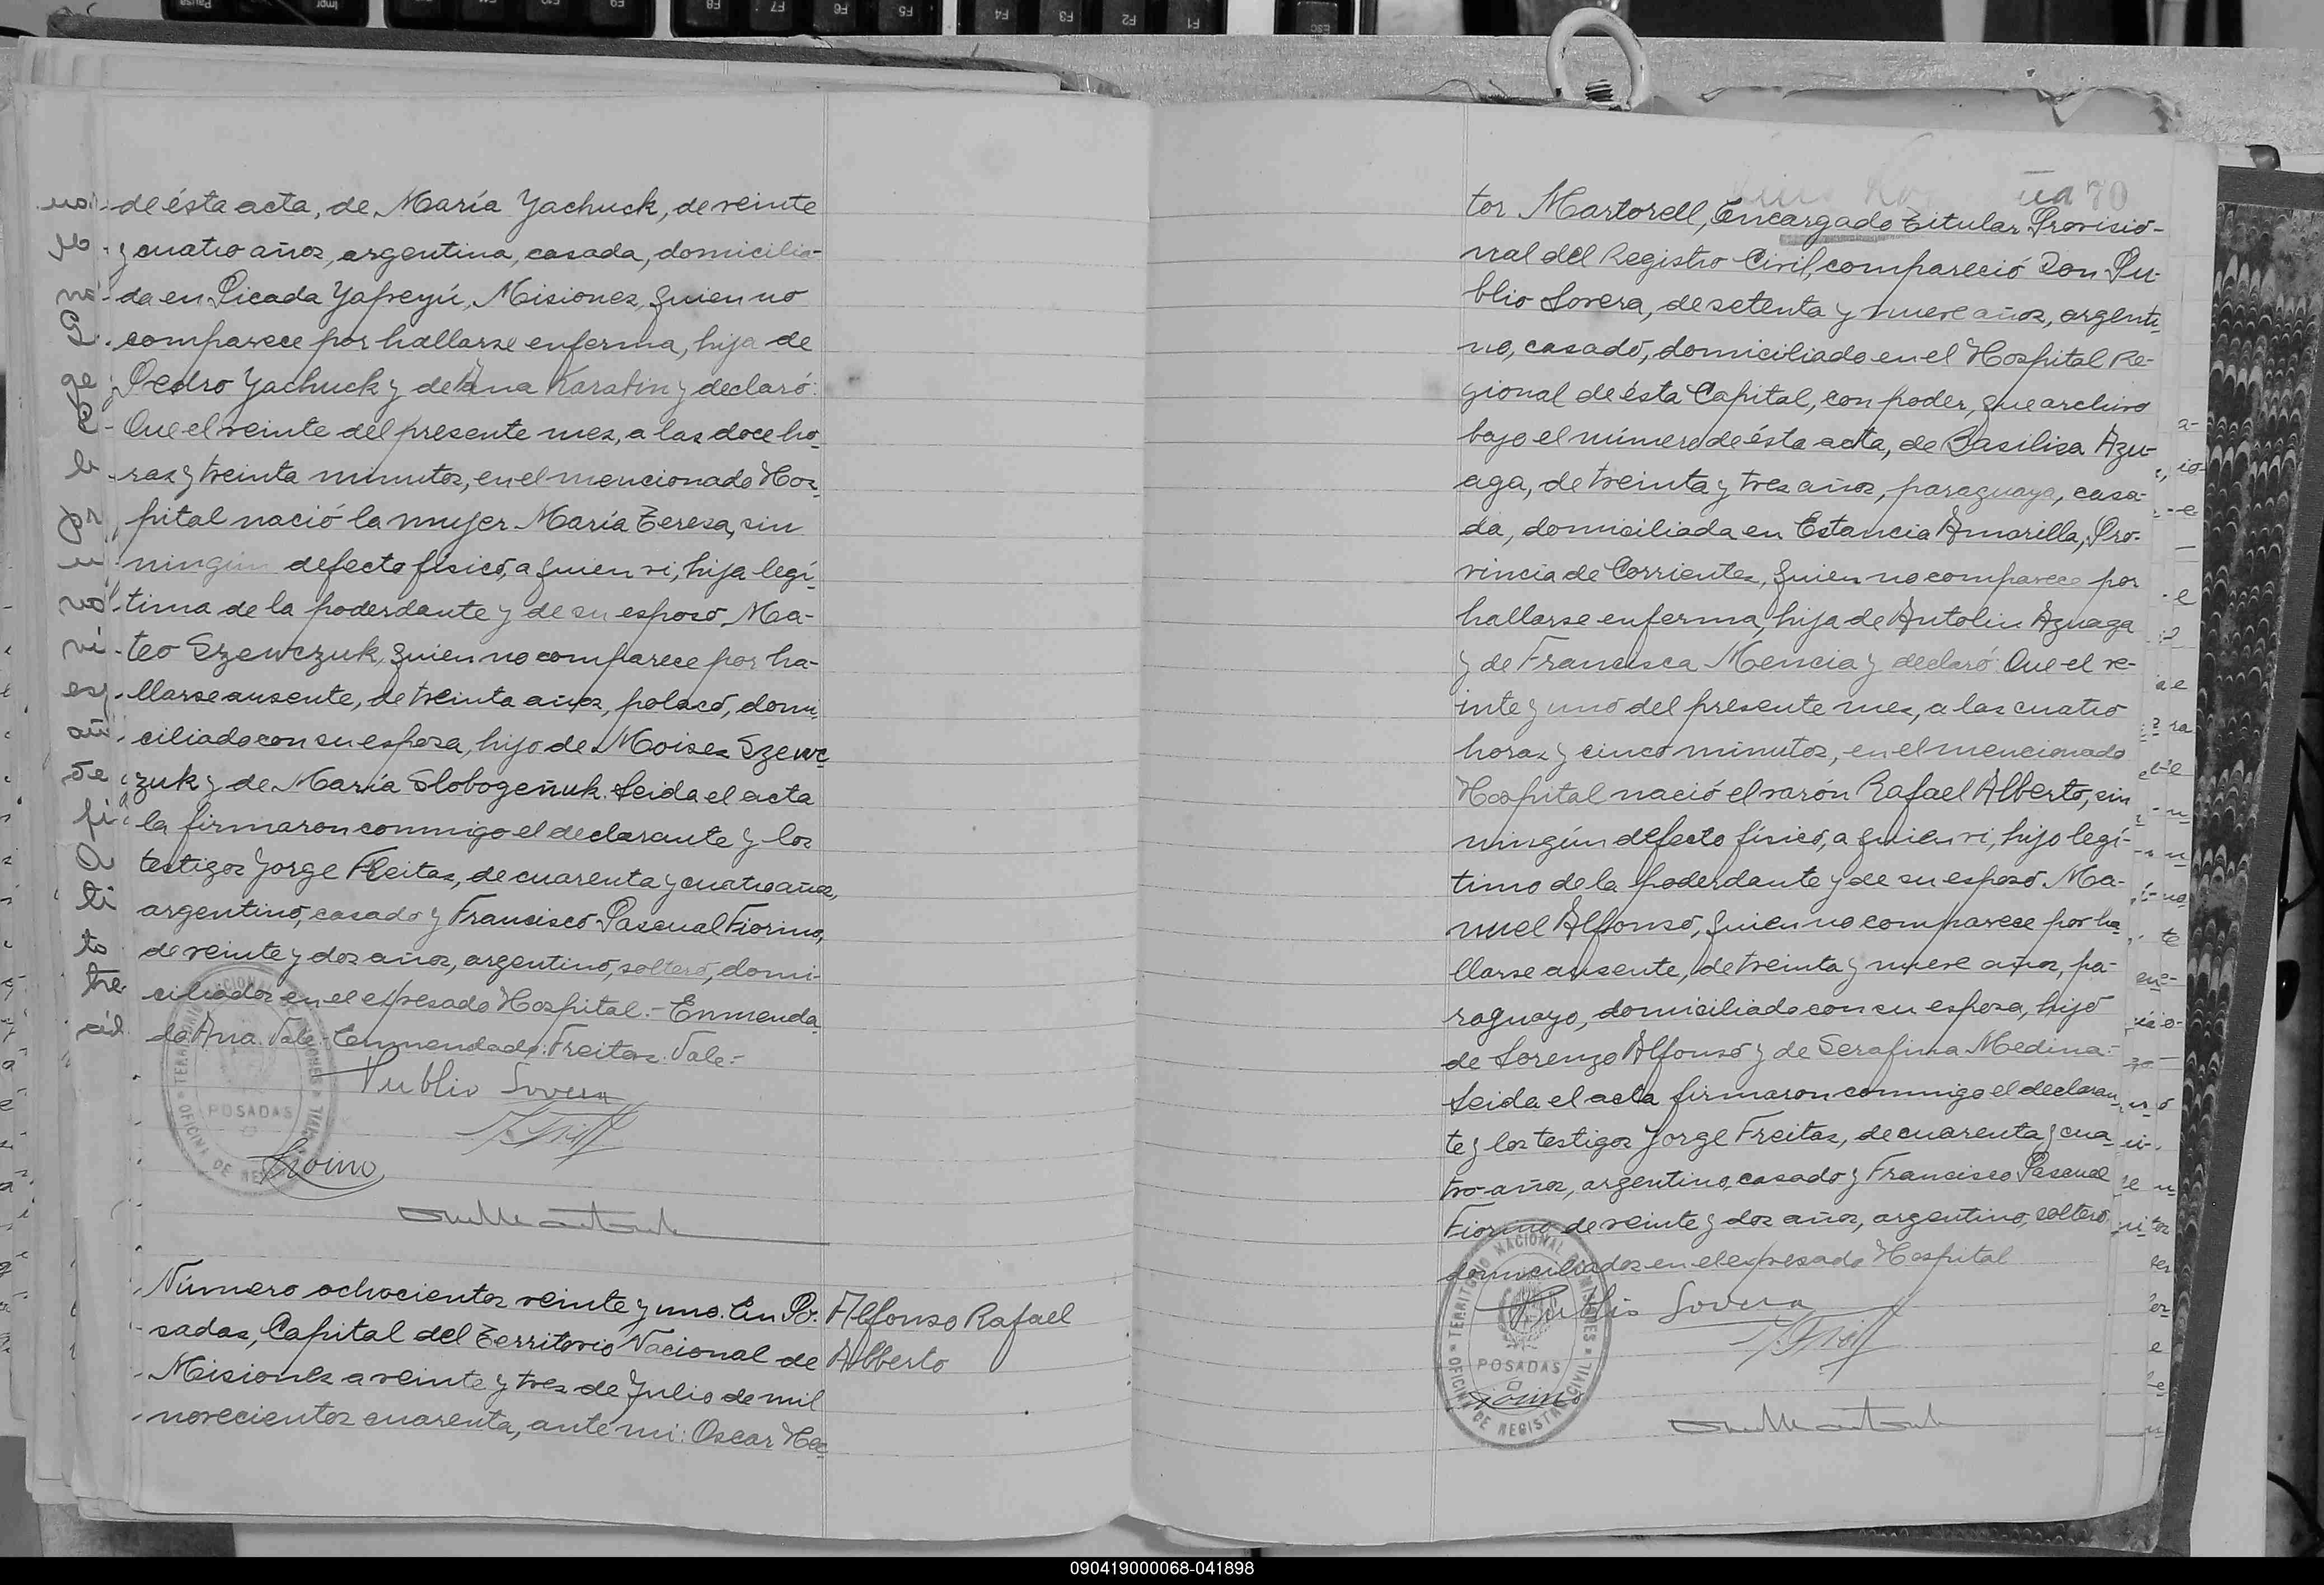 de ésta acta, de María Yachuck, de veinte
y cuatro años, argentina, casada, domicilia-
da en Picada Yapeyú, Misiones, quien no
comparece por hallarse enferma, hija de
Pedro Yachuck y de Ana Karatin y declaró:
Que el veinte del presente mes, a las doce ho-
ras y treinta minutos, en el mencionado Hos-
pital nació la mujer María Teresa, sin
ningún defecto físico, a quien vi, hija legí-
tima de la poderdante y de su esposo, Ma-
teo Szewczuk, quien no comparece por ha-
llarse ausente, de treinta años, polaco, domi-
ciliado con su esposa, hijo de Moises Szewc
zuk y de María Slobogeñuk. Leida el acta
la firmaron conmigo el declarante y los
testigos Jorge Freitas, de cuarenta y cuatro años,
argentino, casado y Francisco Pascual Fiorino,
de veinte y dos años, argentino, soltero, domi-
ciliados en el expresado Hospital.- Enmenda-
do Ana. Vale. Enmendado: Freitas. Vale.-
Publio Lovera
Fiorino
TERRITORIO NACIONAL DE MISIONES
POSADAS
OFICINA DE REGISTRO CIVIL
Número ochocientos veinte y uno. En Po-
sadas, Capital del Territorio Nacional de
Misiones a veinte y tres de Julio de mil
novecientos cuarenta, ante mi: Oscar Hec-
Alfonso Rafael
Alberto
70
tor Martorell, Encargado Titular Provisio-
nal del Registro Civil, compareció Don Pu-
blio Lovera, de setenta y nueve años, argenti-
no, casado, domiciliado en el Hospital Re-
gional de ésta Capital, con poder, que archivo
bajo el número de ésta acta, de Basilisa Azu-
aga, de treinta y tres años, paraguaya, casa-
da, domiciliada en Estancia Amarilla, Pro-
vincia de Corrientes, quien no comparece por
hallarse enferma, hija de Antolin Azuaga
y de Francisca Mencia y declaró: Que el ve-
inte y uno del presente mes, a las cuatro
horas y cinco minutos, en el mencionado
Hospital nació el varón Rafael Alberto, sin
ningún defecto físico, a quien vi, hijo legí-
timo de la poderdante y de su esposo Ma-
nuel Alfonso, quien no comparece por ha-
llarse ausente, de treinta y nueve años, pa-
raguayo, domiciliado con su esposa, hijo
de Lorenzo Alfonso y de Serafina Medina.-
Leida el acta firmaron conmigo el declaran-
te y los testigos Jorge Freitas, de cuarenta y cua-
tro años, argentino, casado y Francisco Pascual
Fiorino, de veinte y dos años, argentino, soltero,
domiciliados en el expresado Hospital
Publio Lovera
Fiorino
TERRITORIO NACIONAL DE MISIONES
POSADAS
OFICINA DE REGISTRO CIVIL
090419000068-041898